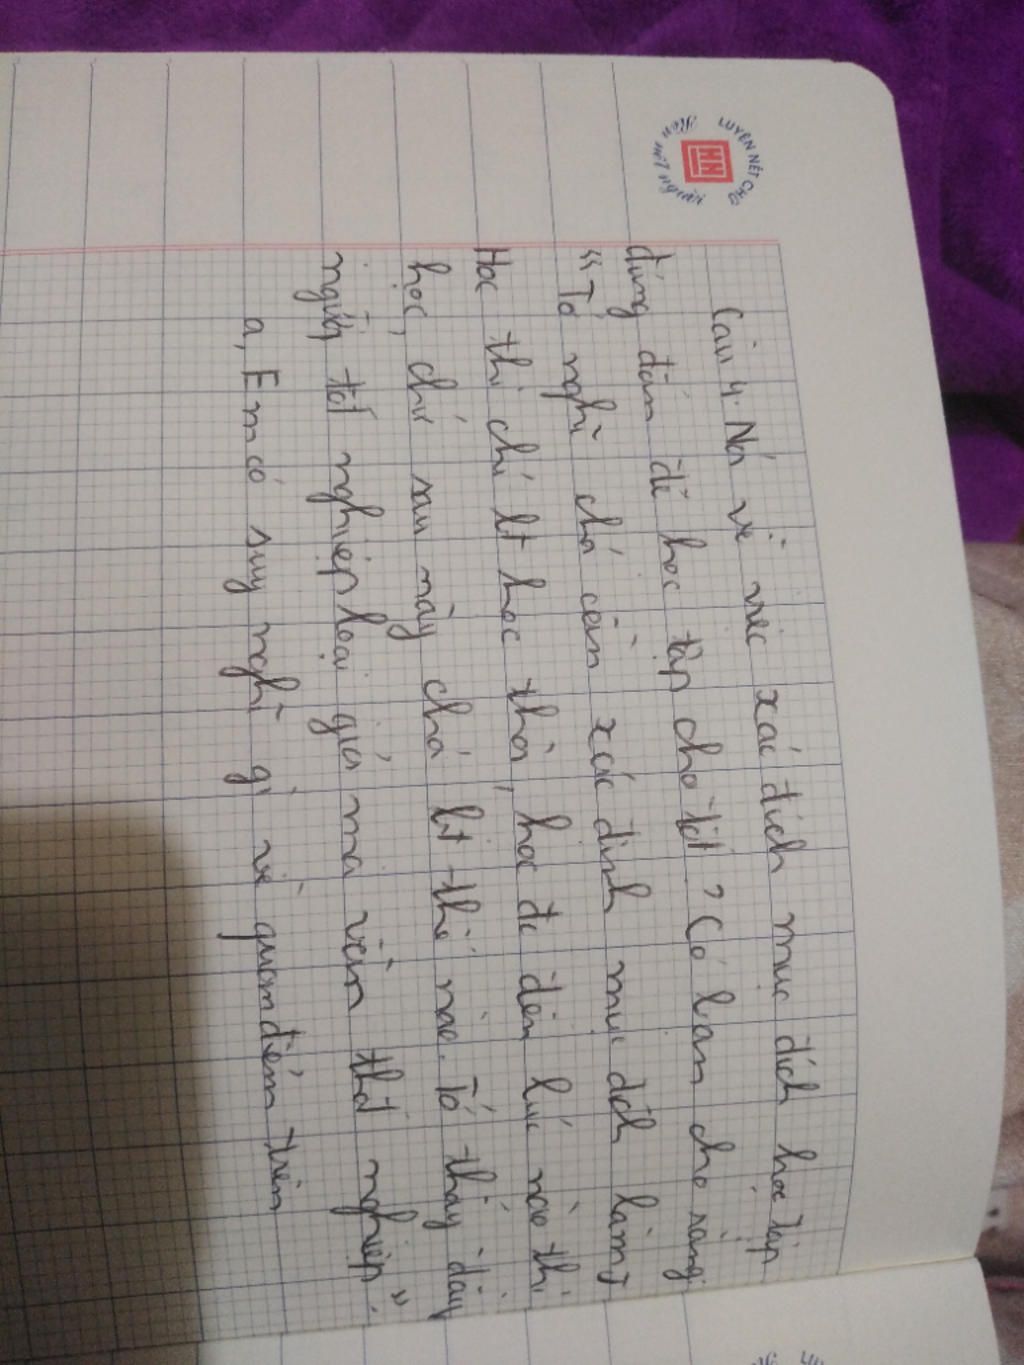 LUYỆN NÉT CHỮ
Rèn nết người
HH
Câu 4. Nói về việc xác đích mục đích học tập
đúng đắn để học tập cho tốt? Có bạn cho rằng
"Tớ nghĩ chả cần xác định mục đích làm j
Học thì chỉ bt học thôi, học đc đến lúc nào thì
học, chứ sau này chả bt thế nào. Tớ thấy đầy
người tốt nghiệp loại giỏi mà vẫn thất nghiệp."
a, Em có suy nghĩ gì về quan điểm trên